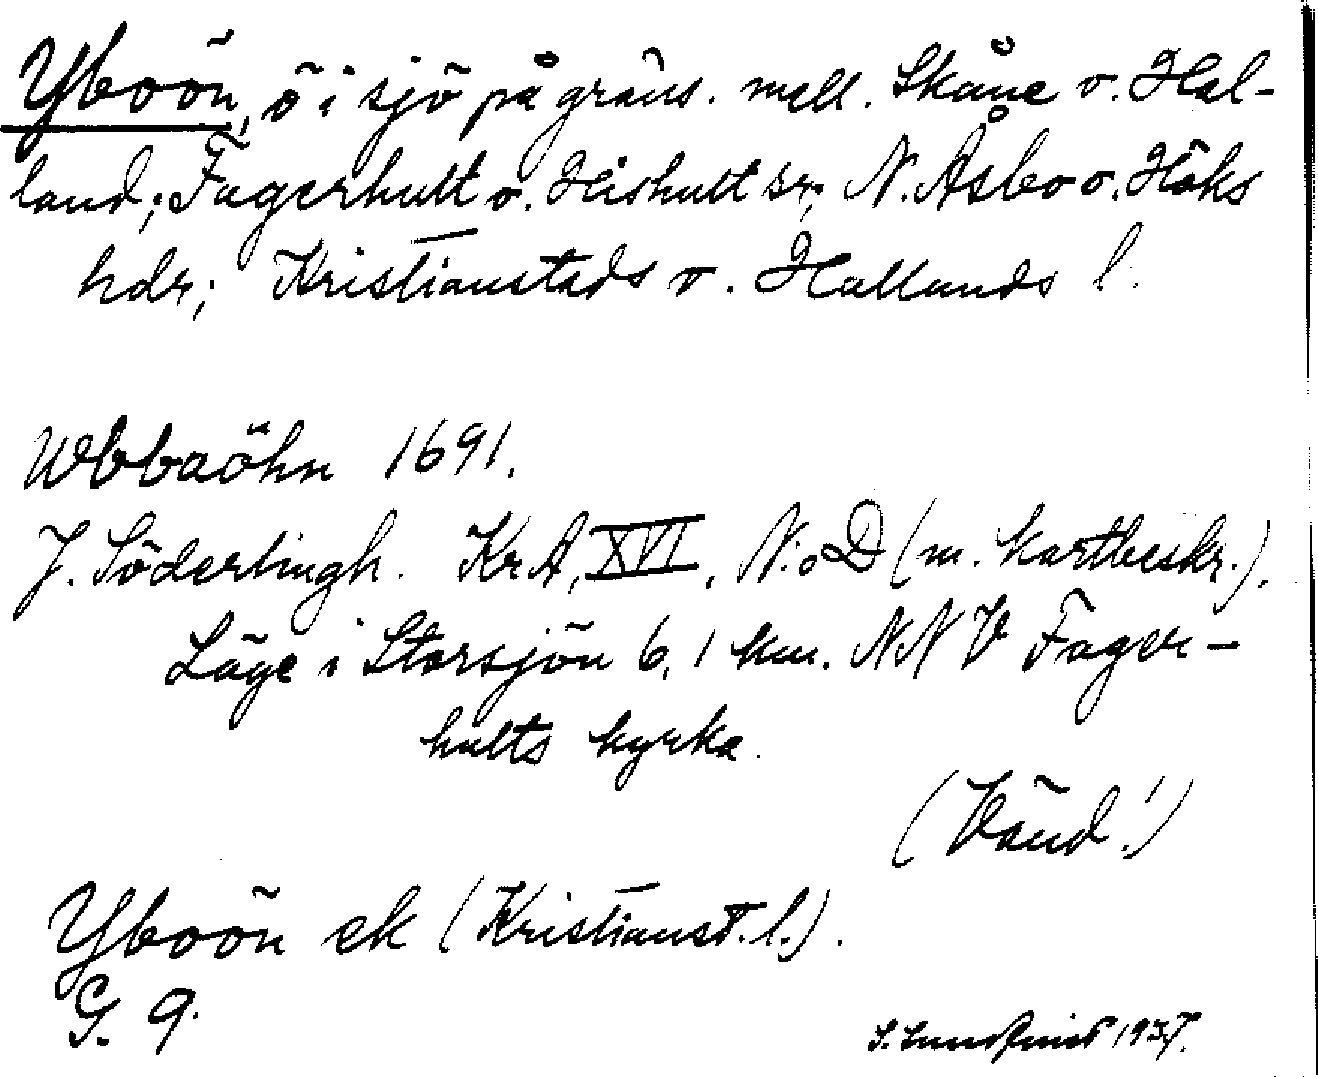 Yboön, ö i sjö på gräns. mell. Skåne o. Hal-
land; Fagerhult o. Hishult sr; N. Åsbo o. Höks
hdr; Kristianstads o. Hallands l.
Wbbaöhn 1691.
J. Söderlingh. KrA, XVI, N:o D (m. kartbeskr.).
Läge i Storsjön 6,1 km. NNV Fager-
hults kyrka.
(Vänd!)
Yboön ek (Kristianst. l.).
G. 9.
S. Lundquist 1937.